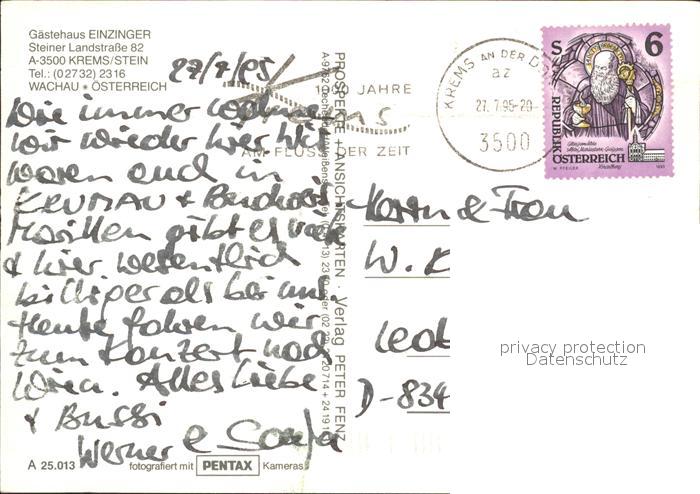 Gästehaus EINZINGER
Steiner Landstraße 82
A-3500 KREMS/STEIN
Tel.: (02732) 2316
WACHAU • ÖSTERREICH
27/7/95
Wie immer wohnen
wir wieder hier. Wir
waren auch in
KRUMAU &
Marillen gibt es
& hier. Wesentlich
billiger als bei uns.
Heute fahren wir
zum Konzert nach
Wien. Alles Liebe
& Bussi
Werner & Sonja
A 25.013
fotografiert mit PENTAX Kameras
PROSPEKTE + ANSICHTSKARTEN · Verlag PETER FENZ
1000 JAHRE
AM FLUSS DER ZEIT
KREMS AN DER D
az
27. 7.95-20
3500
S 6
REPUBLIK
ÖSTERREICH
Herrn & Frau
W. K
D-834
privacy protection
Datenschutz